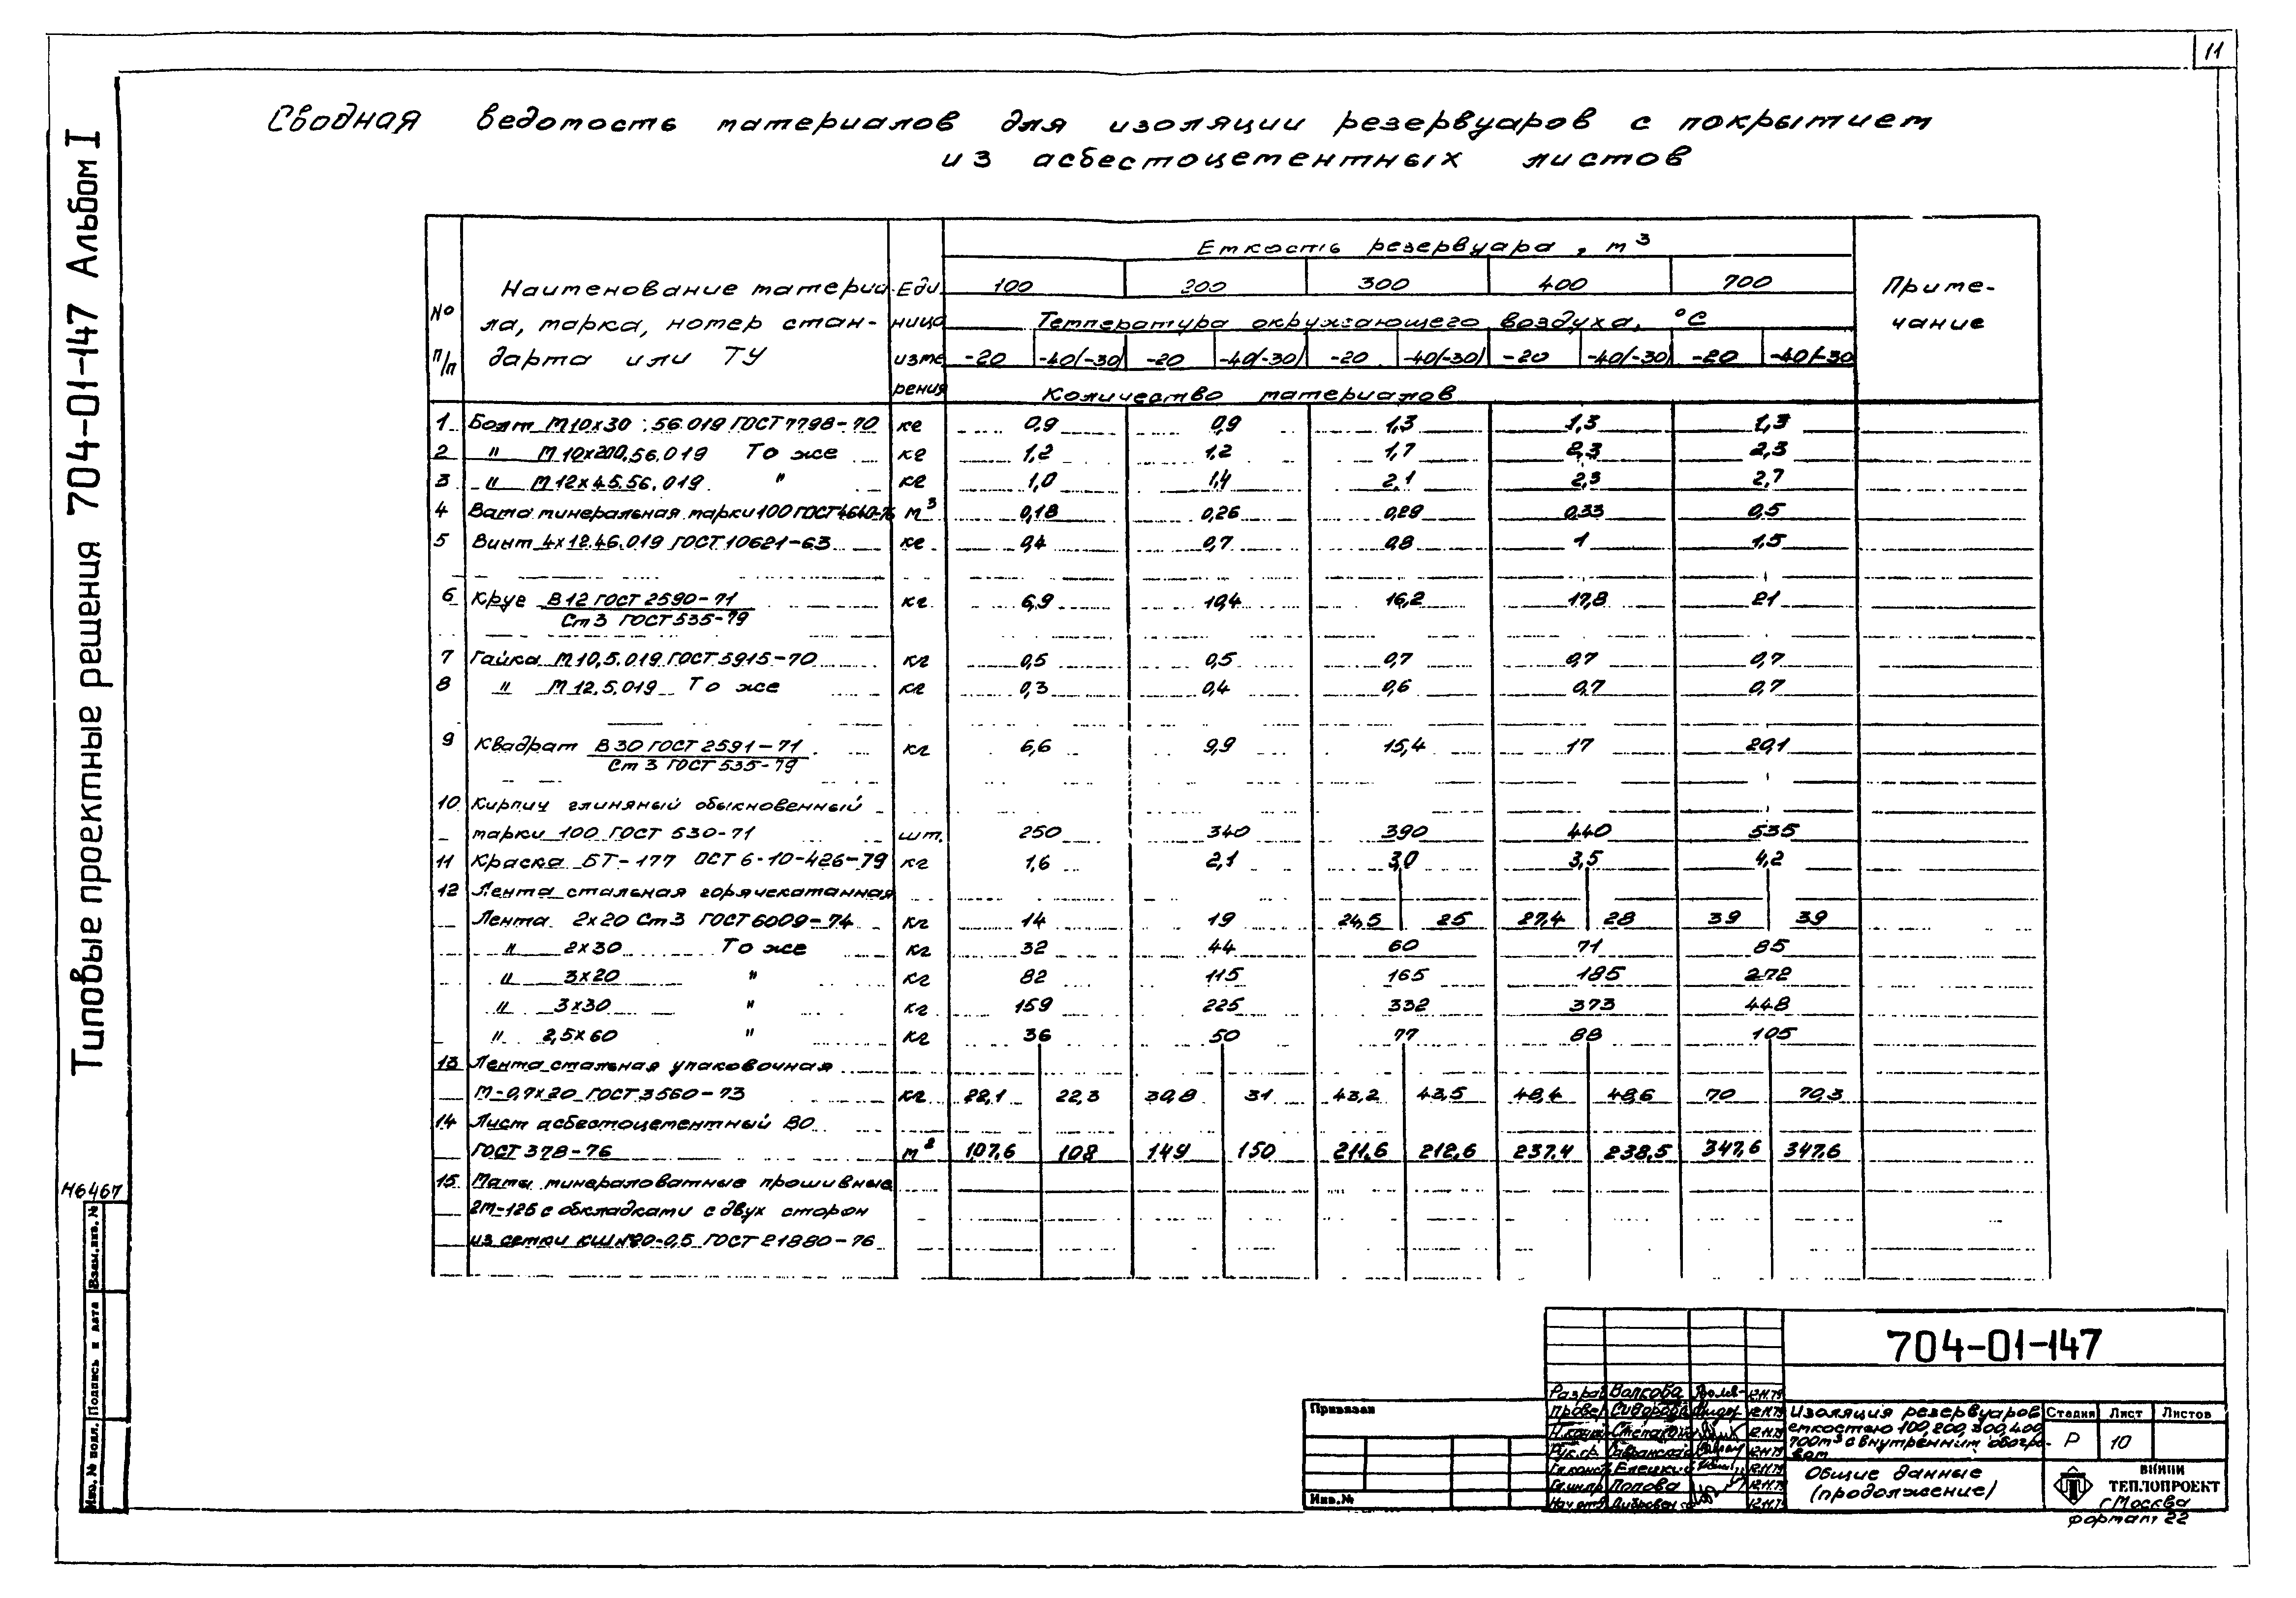 11
Сводная ведомость материалов для изоляции резервуаров с покрытием
из асбестоцементных листов
Типовые проектные решения 704-01-147 Альбом I
№ п/п
Наименование материа-
ла, марка, номер стан-
дарта или ТУ
Еди-
ница
изме
рения
Емкость резервуара, м³
100 200 300 400 700
Температура окружающего воздуха, °С
-20 -40(-30) -20 -40(-30) -20 -40(-30) -20 -40(-30) -20 -40(-30)
Количество материалов
Приме-
чание
1 Болт М10х30.56.019 ГОСТ 7798-70 кг 0,9 0,9 1,3 1,3 1,3
2 " М10х200.56.019 То же кг 1,2 1,2 1,7 2,3 2,3
3 " М12х45.56.019 " кг 1,0 1,4 2,1 2,3 2,7
4 Вата минеральная марки 100 ГОСТ 4640-76 м³ 0,18 0,26 0,29 0,33 0,5
5 Винт 4х12.46.019 ГОСТ 10621-63 кг 0,4 0,7 0,8 1 1,5
6 Круг В12 ГОСТ 2590-71 кг 6,9 10,4 16,2 17,8 21
Ст3 ГОСТ 535-79
7 Гайка М10.5.019 ГОСТ 5915-70 кг 0,5 0,5 0,7 0,7 0,7
8 " М12.5.019 То же кг 0,3 0,4 0,6 0,7 0,7
9 Квадрат В30 ГОСТ 2591-71 кг 6,6 9,9 15,4 17 20,1
Ст 3 ГОСТ 535-79
10 Кирпич глиняный обыкновенный
марки 100 ГОСТ 530-71 шт. 250 340 390 440 535
11 Краска БТ-177 ОСТ 6-10-426-79 кг 1,6 2,1 3,0 3,5 4,2
12 Лента стальная горячекатанная
Лента 2х20 Ст3 ГОСТ 6009-74 кг 14 19 24,5 25 27,4 28 39 39
" 2х30 То же кг 32 44 60 71 85
" 3х20 " кг 82 115 165 185 272
" 3х30 " кг 159 225 332 373 448
" 2,5х60 " кг 36 50 77 88 105
13 Лента стальная упаковочная
М-0,7х20 ГОСТ 3560-73 кг 22,1 22,3 30,8 31 43,2 43,5 48,4 48,6 70 70,3
14 Лист асбестоцементный ВО
ГОСТ 378-76 м² 107,6 108 149 150 211,6 212,6 237,4 238,5 347,6 347,6
15 Маты минераловатные прошивные
2М-125 с обкладками с двух сторон
из сетки КШ №20-0,5 ГОСТ 21880-76
Н6467
Взам.инв. №
Подпись и дата
Инв.№ подл.
704-01-147
Привязан
Инв.№
Разраб Волкова 12.11.79
Провер 12.11.79
Н.конт 12.11.79
Рук.гр. 12.11.79
Гл.конс Елецкий 12.11.79
Гл.инпр Попова 12.11.79
Нач.отд 12.11.79
Изоляция резервуаров
емкостью 100, 200, 300, 400
700м³ с внутренним обогре-
вом
Стадия Лист Листов
Р 10
Общие данные
(продолжение)
ВНИПИ
ТЕПЛОПРОЕКТ
г.Москва
формат 22